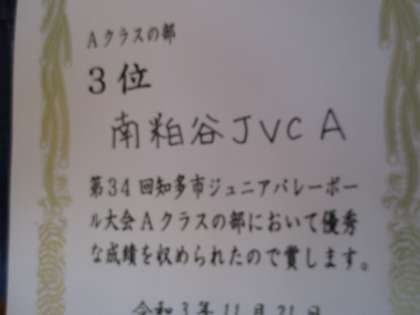 Aクラスの部
3位
南粕谷JVC A
第34回知多市ジュニアバレーボー
ル大会Aクラスの部において優秀
な成績を収められたので賞します。
令和3年11月21日